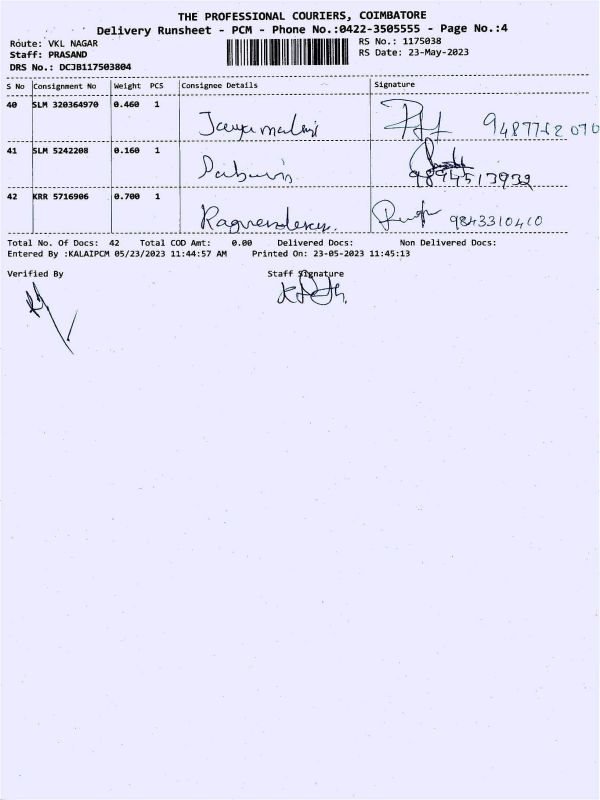 THE PROFESSIONAL COURIERS, COIMBATORE
Delivery Runsheet - PCM - Phone No.:0422-3505555 - Page No.:4
Route: VKL NAGAR RS No.: 1175038
Staff: PRASAND RS Date: 23-May-2023
DRS No.: DCJB117503804
S No Consignment No Weight PCS Consignee Details Signature
40 SLM 320364970 0.460 1
41 SLM 5242208 0.160 1
9894513932
42 KRR 5716906 0.700 1
9843310410
Total No. Of Docs: 42 Total COD Amt: 0.00 Delivered Docs: Non Delivered Docs:
Entered By :KALAIPCM 05/23/2023 11:44:57 AM Printed On: 23-05-2023 11:45:13
Verified By Staff Signature